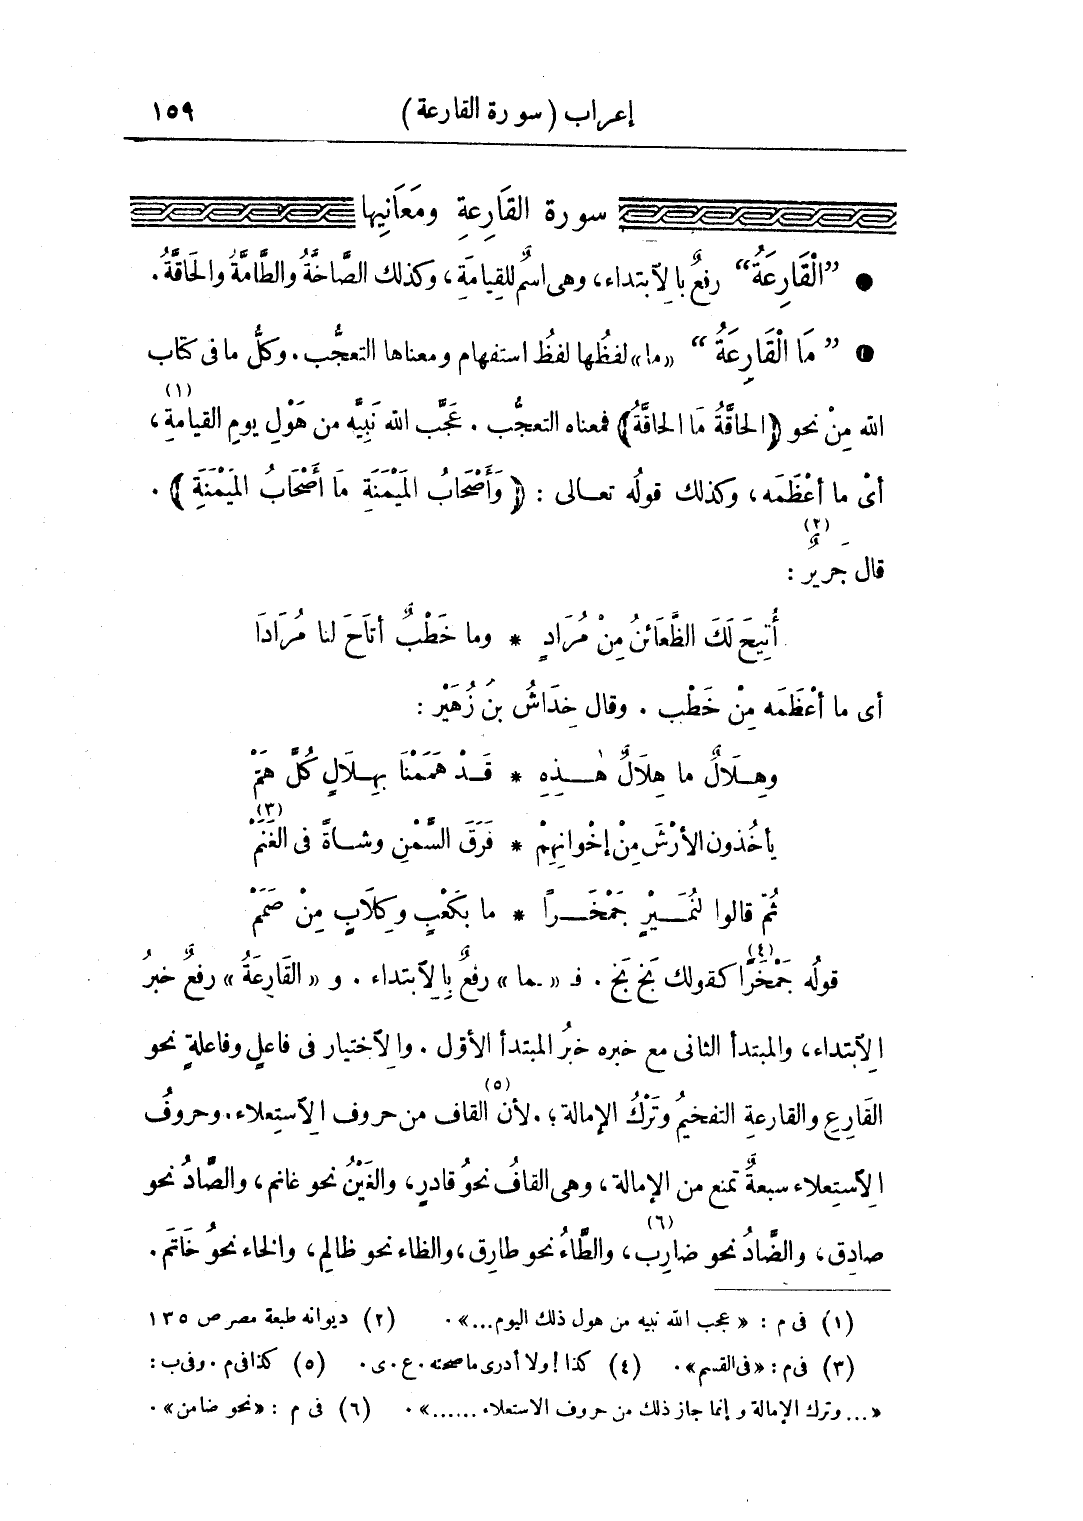 إعراب (سورة القارعة) ١٥٩
سورة القَارِعةِ ومَعَانِيها
● ”الْقَارِعَةُ“ رفعٌ بالِابتداء، وهى اسمٌ للقِيامَةِ، وكذلك الصَّاخَّةُ والطَّامَّةُ والحَاقَّةُ.
● ”مَا الْقَارِعَةُ“ «ما» لفظُها لفظُ استفهام ومعناها التعجُّب. وكلُّ ما فى كتاب
الله مِنْ نحو ﴿الحاقَّةُ مَا الحاقَّةُ﴾ فمعناه التعجُّب. عَجَّب الله نَبِيَّه من هَوْلِ يومِ القيامةِ(١)،
أىْ ما أعْظَمَه، وكذلك قولُه تعـالى : ﴿وَأَصْحَابُ المَيْمَنَةِ مَا أَصْحَابُ المَيْمَنَةِ﴾.
قال جَريرٌ(٢) :
أُتِيحَ لَكَ الظَّعَائنُ مِنْ مُرَادٍ * وما خَطْبٌ أتَاحَ لنا مُرَادَا
أى ما أعْظَمَه مِنْ خَطْب. وقال خِدَاشُ بنُ زُهَيْر :
وهِـلَالٌ ما هِلَالٌ هٰـذِهِ * قَـدْ هَمَمْنَا بِهِـلَالٍ كُلَّ هَمّْ
يأخُذون الأرْشَ مِنْ إخْوانِهِمْ * فَرَقَ السَّمْنِ وشـاةً فى الغَنَمْ(٣)
ثُمّ قالوا لنُمَـيْرٍ جَمْخَـرًا * ما بكَعْبٍ وكِلَابٍ مِنْ صَمَمْ
قولُه جَمْخَرًا(٤) كقولك بَخ بَخ. فـ «ـما» رفعٌ بِالِابتداء. و «القَارِعَةُ» رفعٌ خبرُ
الِابتداء، والمبتدأ الثانى مع خبره خبرُ المبتدأ الأوّل. والِاختيار فى فاعلٍ وفاعلةٍ نحو
القَارِعِ والقارعةِ التفخيمُ وتَرْكُ الإمالة(٥)؛ لأن القاف من حروف الِاستِعلاء. وحروفُ
الِاستِعلاء سبعةٌ تمنع من الإمالة، وهى القافُ نحوُ قادرٍ، والغَيْنُ نحو غانم، والصَّادُ نحو
صادِق، والضَّادُ نحو ضارِب(٦)، والطَّاءُ نحو طارِق، والظاء نحو ظالِم، والخاء نحوُ خَاتَم.
(١) فى م : «عجب الله نبيه من هول ذلك اليوم...». (٢) ديوانه طبعة مصر ص ١٣٥
(٣) فى م : «فى القسم». (٤) كذا! ولا أدرى ما صحته. ع. ى. (٥) كذا فى م. وفى ب :
«... وترك الإمالة و إنما جاز ذلك من حروف الاستعلاء ......». (٦) فى م : «نحو ضامن».